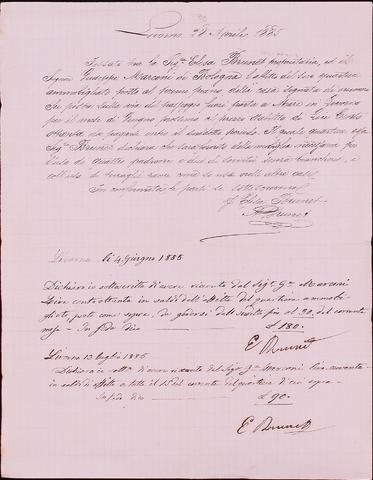 Livorno 28 Aprile 1885
Fissato tra la Sig.ª Elisa Brunet proprietaria, ed il
Signor Giuseppe Marconi di Bologna l'affitto del suo quartiere
ammobigliato posto al terreno piano della casa segnata di numero
sei posta sulla via del passeggio fuori porta a Mare in Livorno
per il mese di Giugno prossimo al prezzo di Lire Cento
ottanta da pagarsi entro il suddetto periodo. Il quale quartiere essa
Sig.ª Brunet dichiara che sarà fornito della mobilia necessaria per
l'uso di quattro padroni e due di servitù senza biancheria, e
In conformità le parti si sottoscrivono
Elisa Brunet
Brunet
Livorno li 4 Giugno 1885
Dichiaro io sottoscritta d'avere ricevuto dal Sig.r G.e Marconi
Lire centottanta in saldo dell'affitto del quartiere ammobi-
gliato, posto come sopra, da godersi dell'entità fin al 30 del corrente
mese - In fede dico £ 180.
E Brunet
Livorno 13 luglio 1885
Dichiaro io sott.a d'avere ricevuto dal Sig.r G.e Marconi lire novanta
in saldo d'affitto a tutto il 15 del corrente del quartiere di cui sopra -
In fede dico £ 90 -
E Brunet